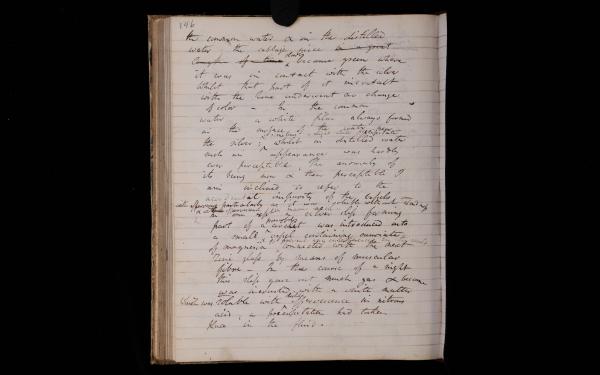 146
the common water & in the distilled
water the cabbage juice in a great
length of time became green where
it was in contact with the silver
whilst that part of it in contact
with the zinc underwent no change
of color – In the common
water a white film always formed
on the surface of the water near
the silver; whilst in distilled water
such an appearance was hardly
ever perceptible. The anomaly of
its being now & then perceptible I
am inclined to refer to the
accidental impurity of the
In one experiment a silver slip forming
part of a circuit was introduced into
a small vessel containing muriate
of magnesia connected with the next
Zinc slip by means of muscular
fibre – In the course of a night
this slip gave out much gas & became
was incrusted with a white matter
which was soluble with effervescence in nitrous
acid, a precipitation had taken
place in the fluid.